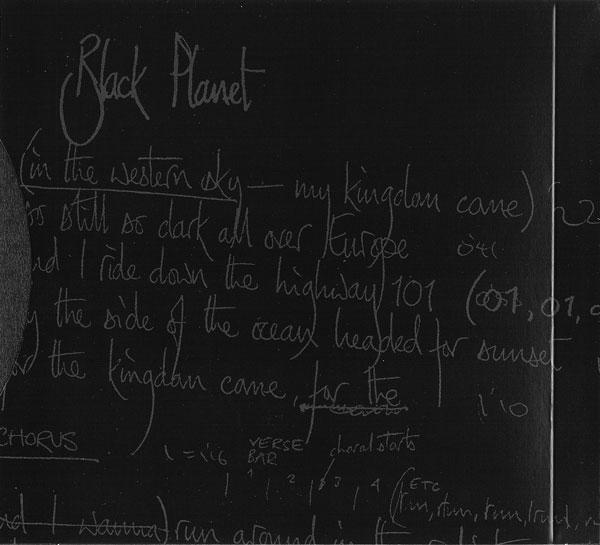 Black Planet
(in the western sky — my kingdom come)
so still so dark all over Europe
I ride down the highway 101 (01, 01,
the side of the ocean headed for sunset
the kingdom came, for the
CHORUS
VERSE
BAR
choral starts
1 2 3 4 (ETC
run, run, run,
I wanna) run around in the